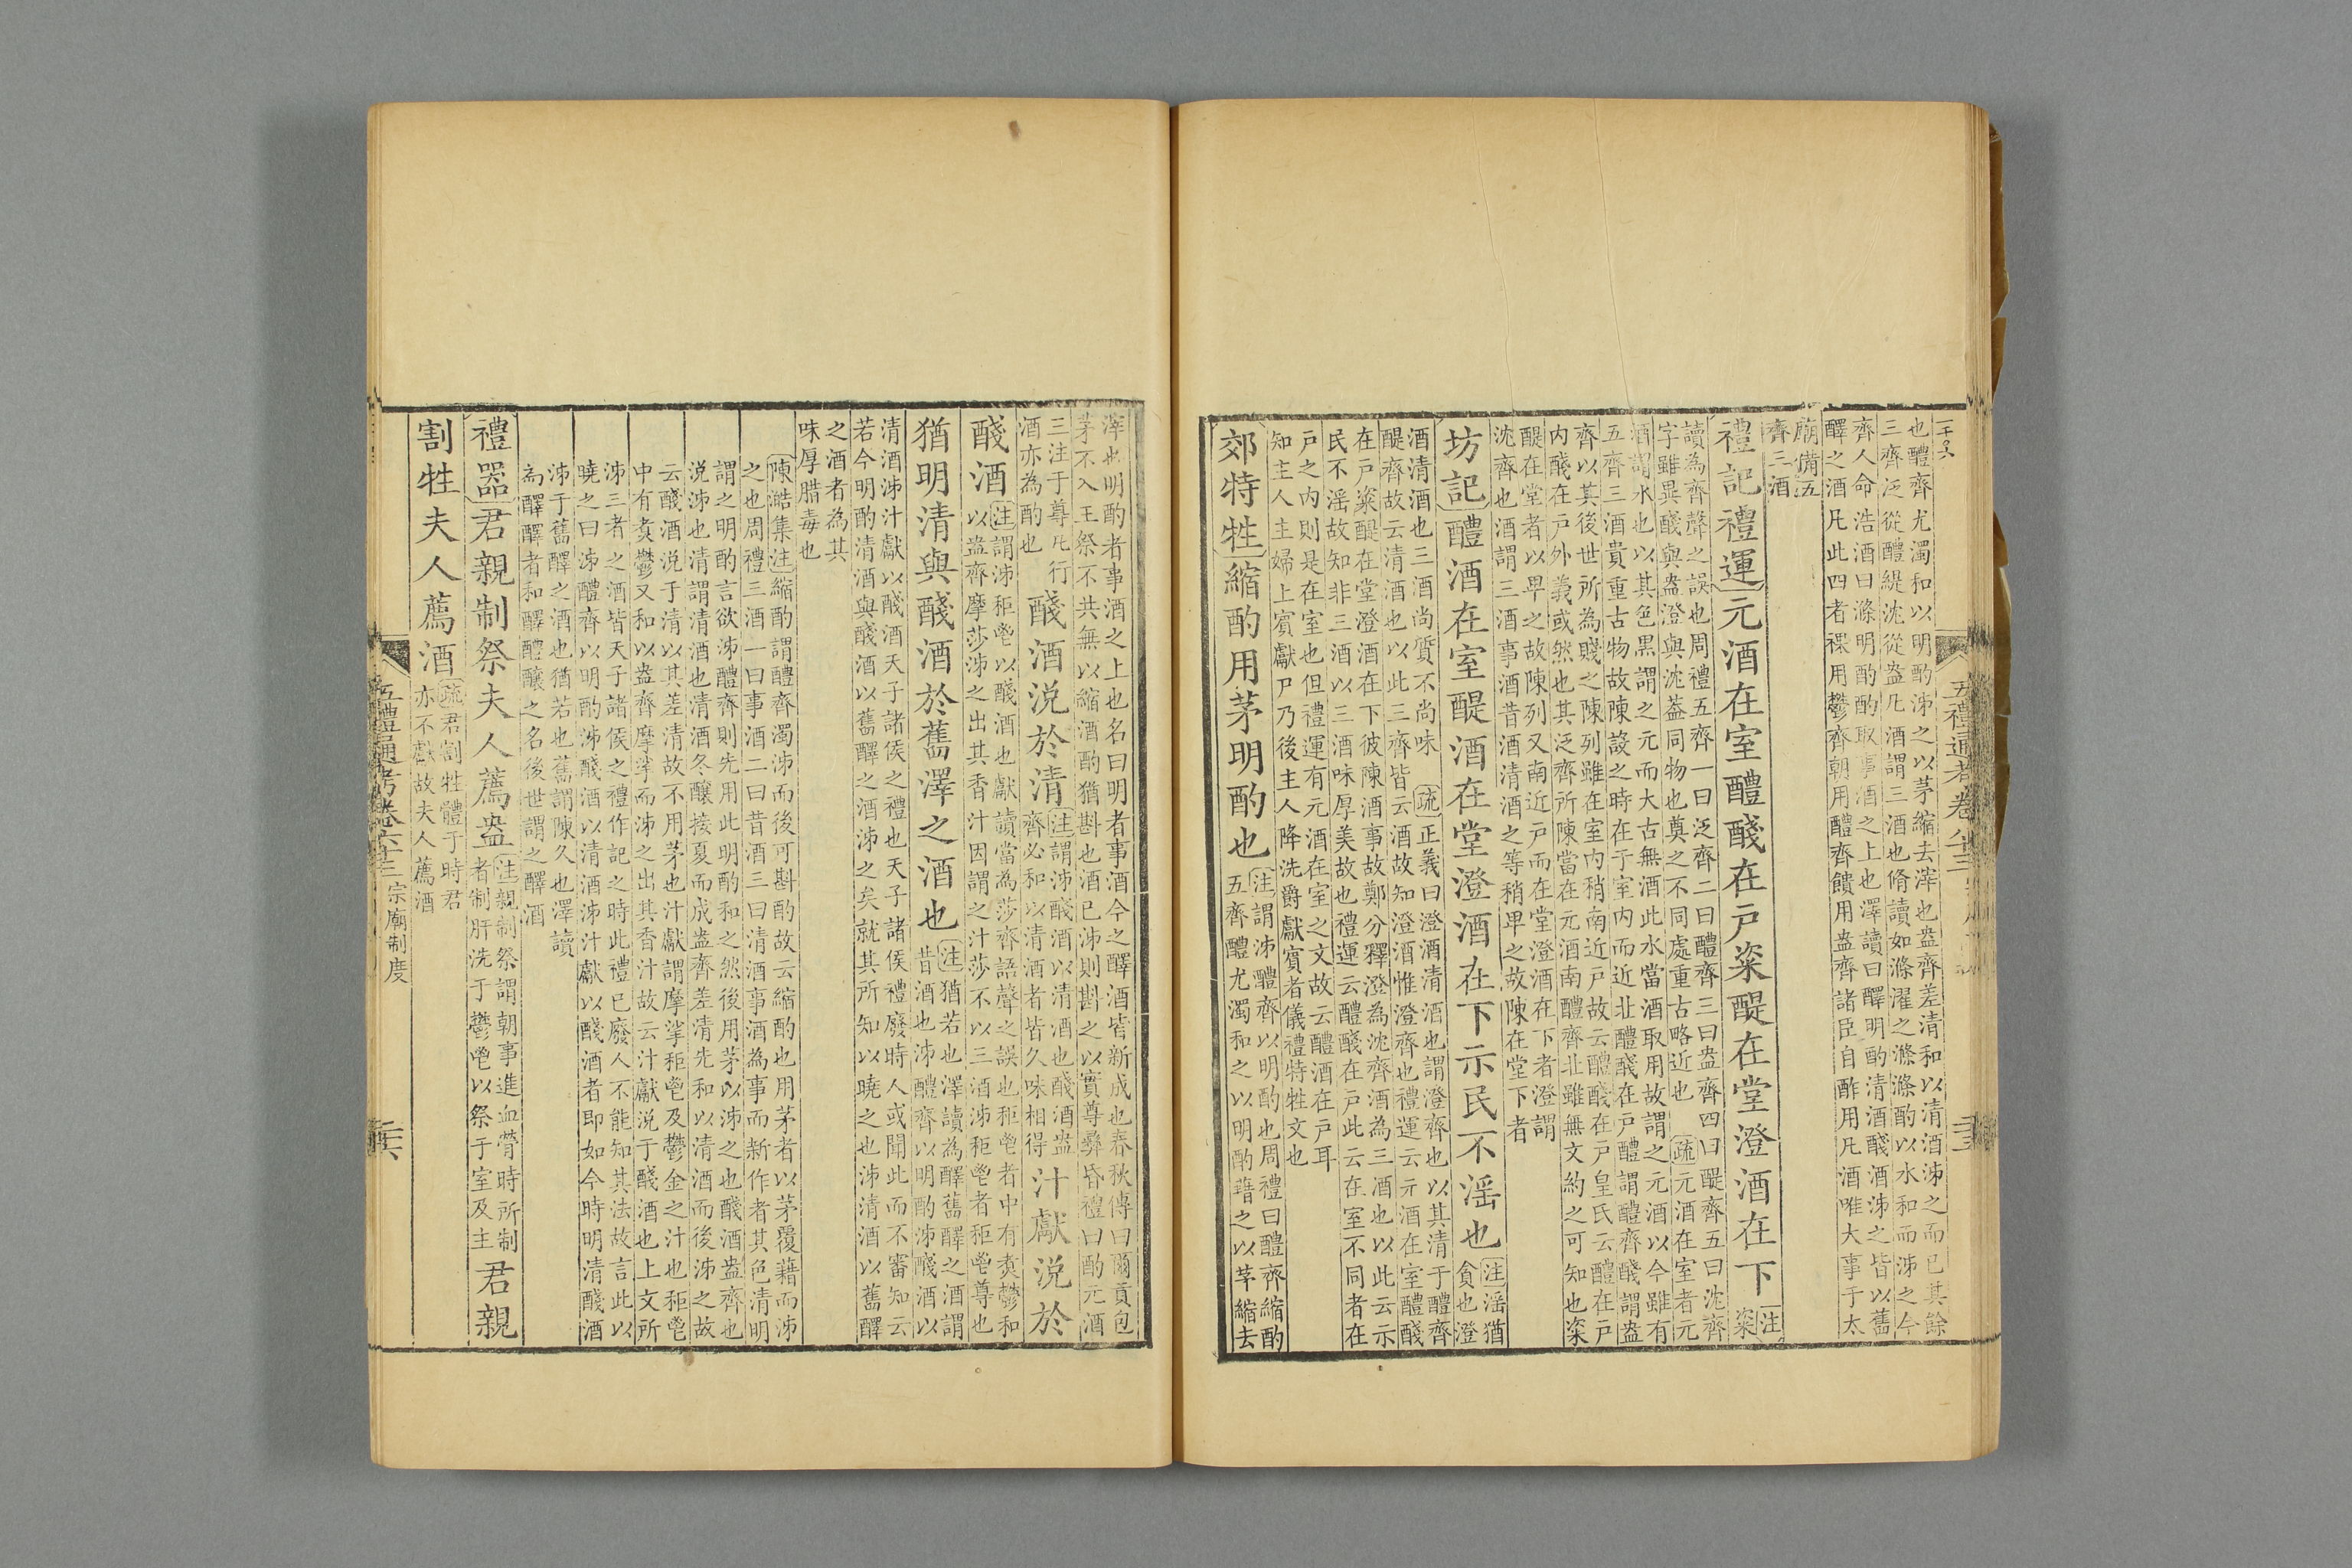 也醴齊尤濁和以明酌泲之以茅縮去滓也盎齊差清和以清酒泲之而已其餘
三齊泛從醴緹沈從盎凡酒謂三酒也脩讀如滌濯之滌滌酌以水和而泲之今
齊人命浩酒曰滌明酌酌取事酒之上也澤讀曰醳明酌清酒醆酒泲之皆以舊
醳之酒凡此四者祼用鬱齊朝用醴齊饋用盎齊諸臣自酢用凡酒唯大事于太
廟備五
齊三酒
禮記禮運元酒在室醴醆在戶粢醍在堂澄酒在下注粢
讀為齊聲之誤也周禮五齊一曰泛齊二曰醴齊三曰盎齊四曰醍齊五曰沈齊
字雖異醆與盎澄與沈葢同物也奠之不同處重古略近也 疏元酒在室者元
酒謂水也以其色黑謂之元而大古無酒此水當酒取用故謂之元酒以今雖有
五齊三酒貴重古物故陳設之時在于室內而近北醴醆在戶醴謂醴齊醆謂盎
齊以其後世所為賤之陳列雖在室內稍南近戶故云醴醆在戶皇氏云醴在戶
內醆在戶外義或然也其泛齊所陳當在元酒南醴齊北雖無文約之可知也粢
醍在堂者以卑之故陳列又南近戶而在堂澄酒在下者澄謂
沈齊也酒謂三酒事酒昔酒清酒之等稍卑之故陳在堂下者
坊記醴酒在室醍酒在堂澄酒在下示民不淫也注淫猶貪也澄
酒清酒也三酒尚質不尚味 疏正義曰澄酒清酒也謂澄齊也以其清于醴齊
醍齊故云清酒也以此三齊皆云酒故知澄酒惟澄齊也禮運云元酒在室醴醆
在戶粢醍在堂澄酒在下彼陳酒事故鄭分釋澄為沈齊酒為三酒也以此云示
民不淫故知非三酒以三酒味厚美故也禮運云醴醆在戶此云在室不同者在
戶之內則是在室也但禮運有元酒在室之文故云醴酒在戶耳
知主人主婦上賓獻尸乃後主人降洗爵獻賓者儀禮特牲文也
郊特牲縮酌用茅明酌也注謂泲醴齊以明酌也周禮曰醴齊縮酌
五齊醴尤濁和之以明酌藉之以茅縮去
滓也明酌者事酒之上也名曰明者事酒今之醳酒皆新成也春秋傳曰爾貢包
茅不入王祭不共無以縮酒酌猶斟也酒已泲則斟之以實尊彝昏禮曰酌元酒
三注于尊凡行
酒亦為酌也
醆酒涗於清注謂泲醆酒以清酒也醆酒盎
齊必和以清酒者皆久味相得
汁獻涗於
醆酒注謂泲秬鬯以醆酒也獻讀當為莎齊語聲之誤也秬鬯者中有煑鬱和
以盎齊摩莎泲之出其香汁因謂之汁莎不以三酒泲秬鬯者秬鬯尊也
猶明清與醆酒於舊澤之酒也注猶若也澤讀為醳舊醳之酒謂
昔酒也泲醴齊以明酌泲醆酒以
清酒泲汁獻以醆酒天子諸侯之禮也天子諸侯禮廢時人或聞此而不審知云
若今明酌清酒與醆酒以舊醳之酒泲之矣就其所知以曉之也泲清酒以舊醳
之酒者為其
味厚腊毒也
陳澔集注縮酌謂醴齊濁泲而後可斟酌故云縮酌也用茅者以茅覆藉而泲
之也周禮三酒一曰事酒二曰昔酒三曰清酒事酒為事而新作者其色清明
謂之明酌言欲泲醴齊則先用此明酌和之然後用茅以泲之也醆酒盎齊也
涗泲也清謂清酒也清酒冬釀接夏而成盎齊差清先和以清酒而後泲之故
云醆酒涗于清以其差清故不用茅也汁獻謂摩挲秬鬯及鬱金之汁也秬鬯
中有煑鬱又和以盎齊摩挲而泲之出其香汁故云汁獻涗于醆酒也上文所
泲三者之酒皆天子諸侯之禮作記之時此禮已廢人不能知其法故言此以
曉之曰泲醴齊以明酌泲醆酒以清酒泲汁獻以醆酒者即如今時明清醆酒
泲于舊醳之酒也猶若也舊謂陳久也澤讀
為醳醳者和醳醴釀之名後世謂之醳酒
禮器君親制祭夫人薦盎注親制祭謂朝事進血膋時所制
者制肝洗于鬱鬯以祭于室及主
君親
割牲夫人薦酒疏君割牲體于時君
亦不獻故夫人薦酒
五禮通考卷六十三 宗廟制度